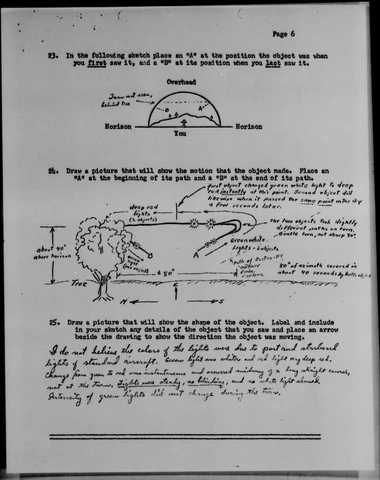 Page 6
23. In the following sketch place an "A" at the position the object was when
you first saw it, and a "B" at its position when you last saw it.
Overhead
Trees not seen,
behind tree
B
A
Horizon
Horizon
You
24. Draw a picture that will show the motion that the object made. Place an
"A" at the beginning of its path and a "B" at the end of its path.
first object changed green white light to deep
red instantly at this point. Second object did
likewise when it passed the same point in the sky
a few seconds later.
deep red
lights
(2 objects)
the two objects took slightly
different paths on turn.
Gentle turn, not sharp 90°.
Green white
lights - 2 objects
A
about 40°
above horizon
path of
80° of azimuth covered in
about 40 seconds by both objects
80°
Tree
N
S
E
25. Draw a picture that will show the shape of the object. Label and include
in your sketch any details of the object that you saw and place an arrow
beside the drawing to show the direction the object was moving.
I do not believe the colors of the lights were due to port and starboard
lights of standard aircraft. Green light was whitish and red light very deep red.
Change from green to red was instantaneous and occurred midway of a long straight course,
not at the turn. Lights were steady, no blinking, and no white light
Intensity of green lights did not change during the turn.